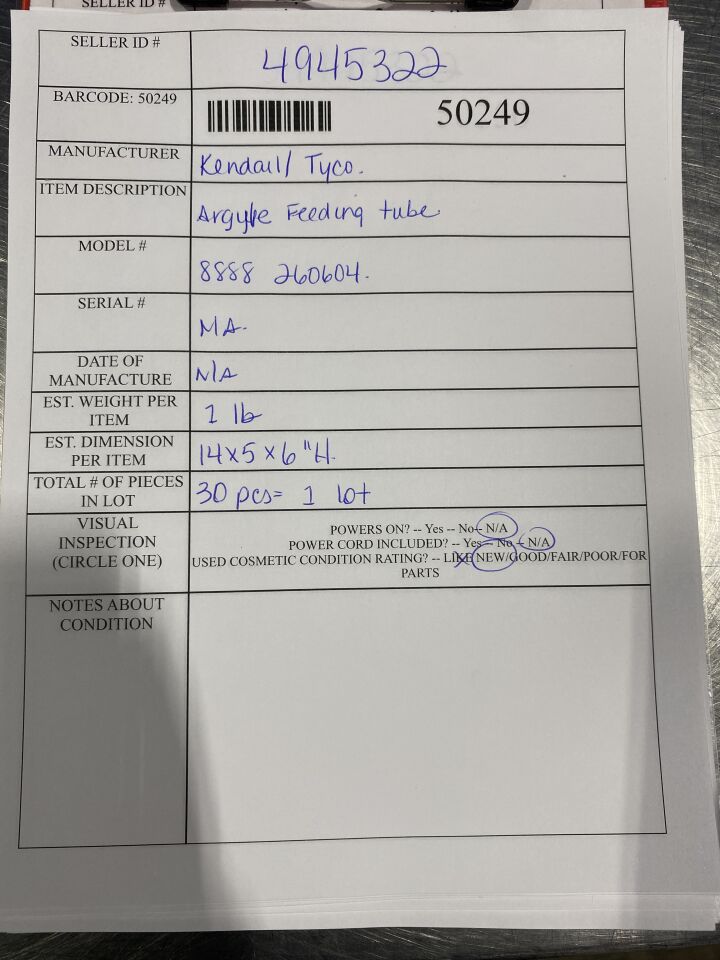 SELLER ID #
SELLER ID #
4945322
BARCODE: 50249
50249
MANUFACTURER
Kendall/ Tyco.
ITEM DESCRIPTION
Argyle Feeding tube
MODEL #
8888 260604.
SERIAL #
NA.
DATE OF
MANUFACTURE
N/A
EST. WEIGHT PER
ITEM
1 lb
EST. DIMENSION
PER ITEM
14x5x6"H.
TOTAL # OF PIECES
IN LOT
30 pcs= 1 lot
VISUAL
INSPECTION
(CIRCLE ONE)
POWERS ON? -- Yes -- No-- N/A
POWER CORD INCLUDED? -- Yes-- No -- N/A
USED COSMETIC CONDITION RATING? -- LIKE NEW/GOOD/FAIR/POOR/FOR
PARTS
NOTES ABOUT
CONDITION